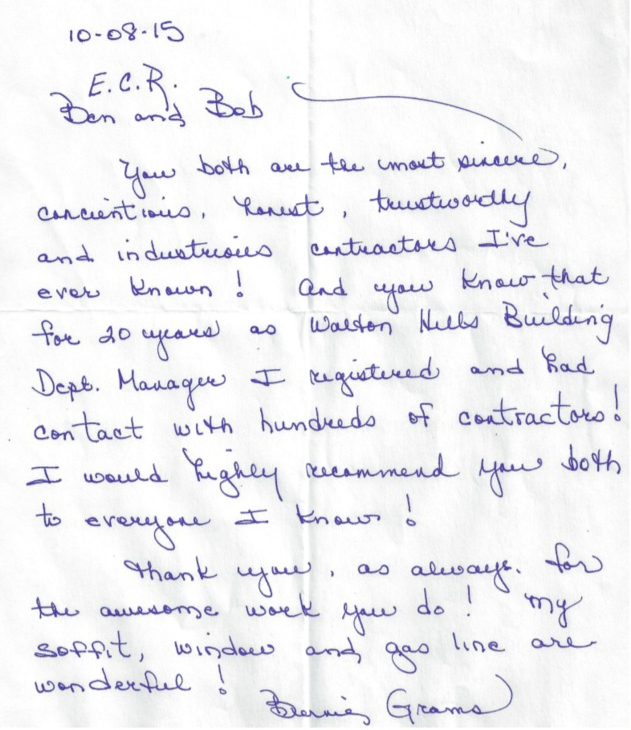 10-08-15
E.C.R.
Ben and Bob
You both are the most sincere,
concientious, honest, trustworthy
and industrious contractors I've
ever known! And you know that
for 20 years as Walton Hills Building
Dept. Manager I registered and had
contact with hundreds of contractors!
I would highly recommend you both
to everyone I know!
Thank you, as always, for
the awesome work you do! My
soffit, window and gas line are
wonderful!
Bernie Grams